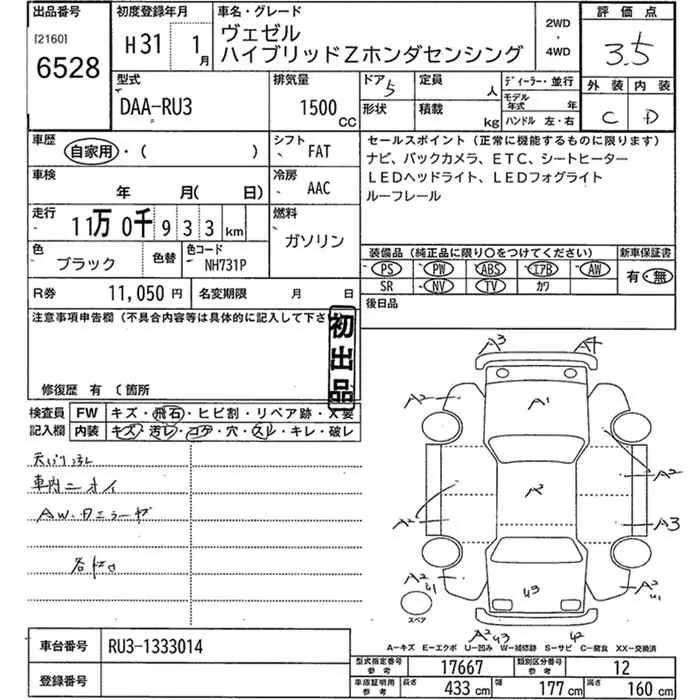 出品番号
[2160]
6528
初度登録年月
H31 1月
車名・グレード
ヴェゼル
ハイブリッドZホンダセンシング
2WD
・
4WD
評価点
3.5
外装 内装
C D
型式
DAA-RU3
排気量
1500 CC
ドア 5
形状
定員 人
積載 kg
ディーラー・並行
モデル年式 年
ハンドル 左・右
車歴
自家用・( )
シフト
FAT
車検
年 月( 日)
冷房
AAC
走行
11万0千933km
燃料
ガソリン
色
ブラック
色替
色コード
NH731P
R券 11,050円
名変期限 月 日
セールスポイント(正常に機能するものに限ります)
ナビ、バックカメラ、ETC、シートヒーター
LEDヘッドライト、LEDフォグライト
ルーフレール
装備品(純正品に限り○をつけてください)
PS PW ABS エアB AW
SR NV TV カワ
新車保証書
有・無
後日品
注意事項申告欄(不具合内容等は具体的に記入して下さ
初出品
修復歴 有( 箇所
検査員
記入欄
FW キズ・飛石・ヒビ割・リペア跡・X要
内装 キズ・汚レ・コゲ・穴・スレ・キレ・破レ
車内ニオイ
A3 A4
A2 A1
A2 A2 A2
A2 A3
A2 U1 U3 A2 U1
A2 U3
スペア
A−キズ E−エクボ U−凹み W−補修跡 S−サビ C−腐食 XX−交換済
車台番号 RU3-1333014
登録番号
型式指定番号 参考 17667
類別区分番号 参考 12
車庫証明用 参考 長さ 433 cm 幅 177 cm 高さ 160 cm